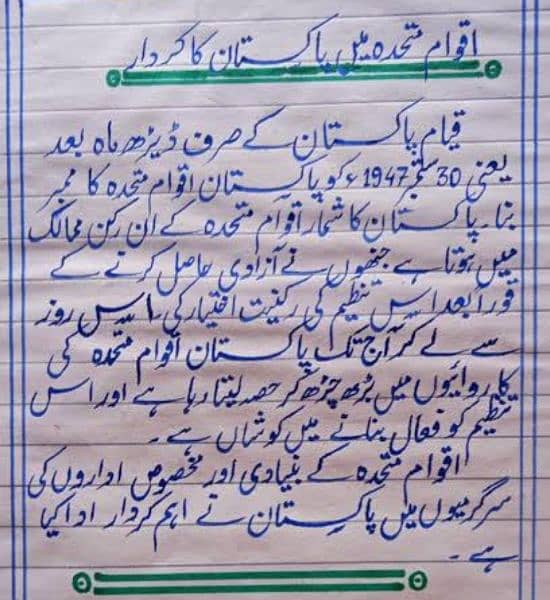 اقوام متحدہ میں پاکستان کا کردار
قیام پاکستان کے صرف ڈیڑھ ماہ بعد
یعنی 30 ستمبر 1947ء کو پاکستان اقوام متحدہ کا ممبر
بنا۔ پاکستان کا شمار اقوام متحدہ کے ان رکن ممالک
میں ہوتا ہے جنھوں نے آزادی حاصل کرنے کے
فوراً بعد اس تنظیم کی رکنیت اختیار کی۔ اس روز
سے لے کر آج تک پاکستان اقوام متحدہ کی
کاروائیوں میں بڑھ چڑھ کر حصہ لیتا رہا ہے اور اس
تنظیم کو فعال بنانے میں کوشاں ہے۔
اقوام متحدہ کے بنیادی اور مخصوص اداروں کی
سرگرمیوں میں پاکستان نے اہم کردار ادا کیا
ہے۔